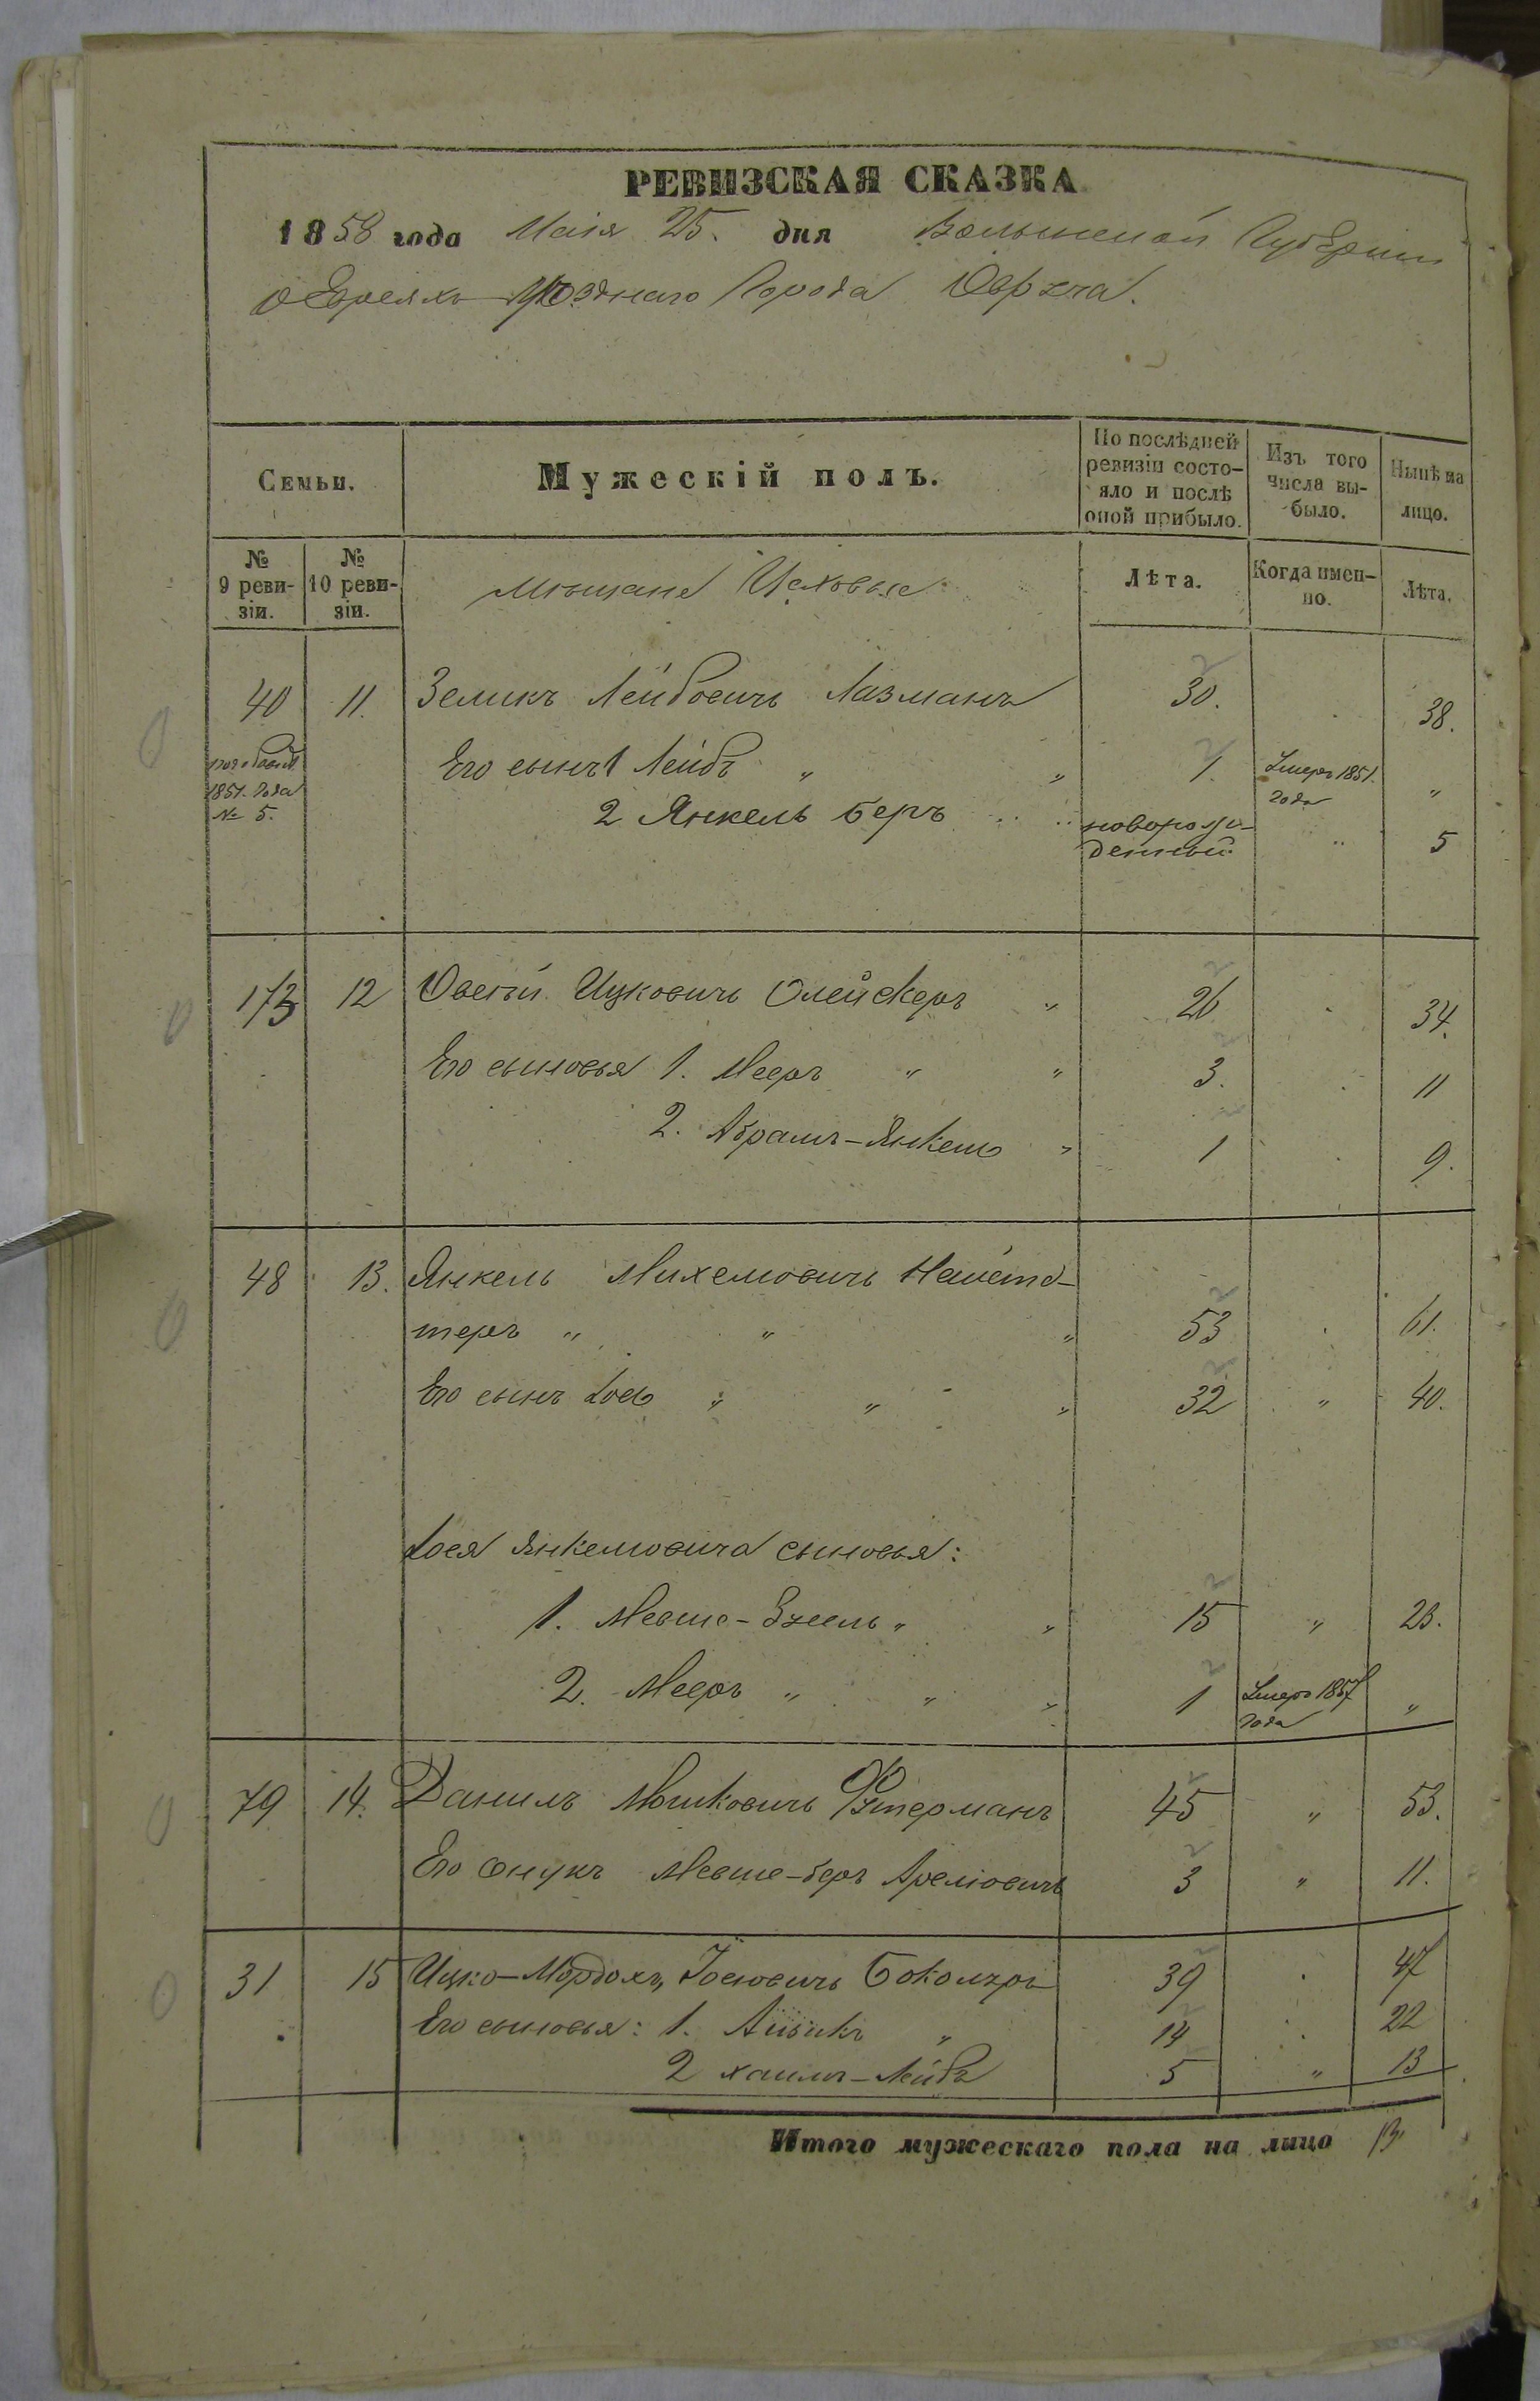 РЕВИЗСКАЯ СКАЗКА
1858 года Маія 25. дня Волынской Губерніи
о Евреяхъ Уѣзднаго Города Овруча.
Семьи.
Мужескій полъ.
По послѣдней ревизіи состо-
яло и послѣ
оной прибыло.
Изъ того
числа вы-
было.
Нынѣ на
лицо.
№
9 реви-
зіи.
№
10 реви-
зіи.
Мѣщане
Лѣта.
Когда имен-
но.
Лѣта.
40 11. Зеликъ Лейбовичъ Лазманъ 30. 38.
1851. Года
№ 5.
Его сынъ 1 Лейбъ " " 1. Умеръ 1851. года "
2 Янкель Беръ новорож-
денный " 5
173 12 Овсѣй Ицковичъ Олейскеръ " 26 34.
Его сыновья 1. Мееръ " " 3. 11
2. Абрамъ-Янкель " 1 9.
48 13. Янкель Михелиовичъ
теръ " " " 53 61.
Его сынъ Іось " " " 32 " 40.
Іося Янкелиовича сыновья:
1. Мовше- " " 15 " 23.
2. Мееръ " " " 1 Умеръ 1857
года "
79 14. Данилъ Мошковичъ Футерманъ 45 " 53.
Его внукъ Мовше-Беръ Арелиовичъ 3 " 11.
31 15 Ицко-Мордохъ, Іосиовичъ 39 47
Его сыновья: 1. Айзикъ " 14 22
2 Хаимъ-Лейбъ 5 " 13
Итого мужескаго пола на лицо 13